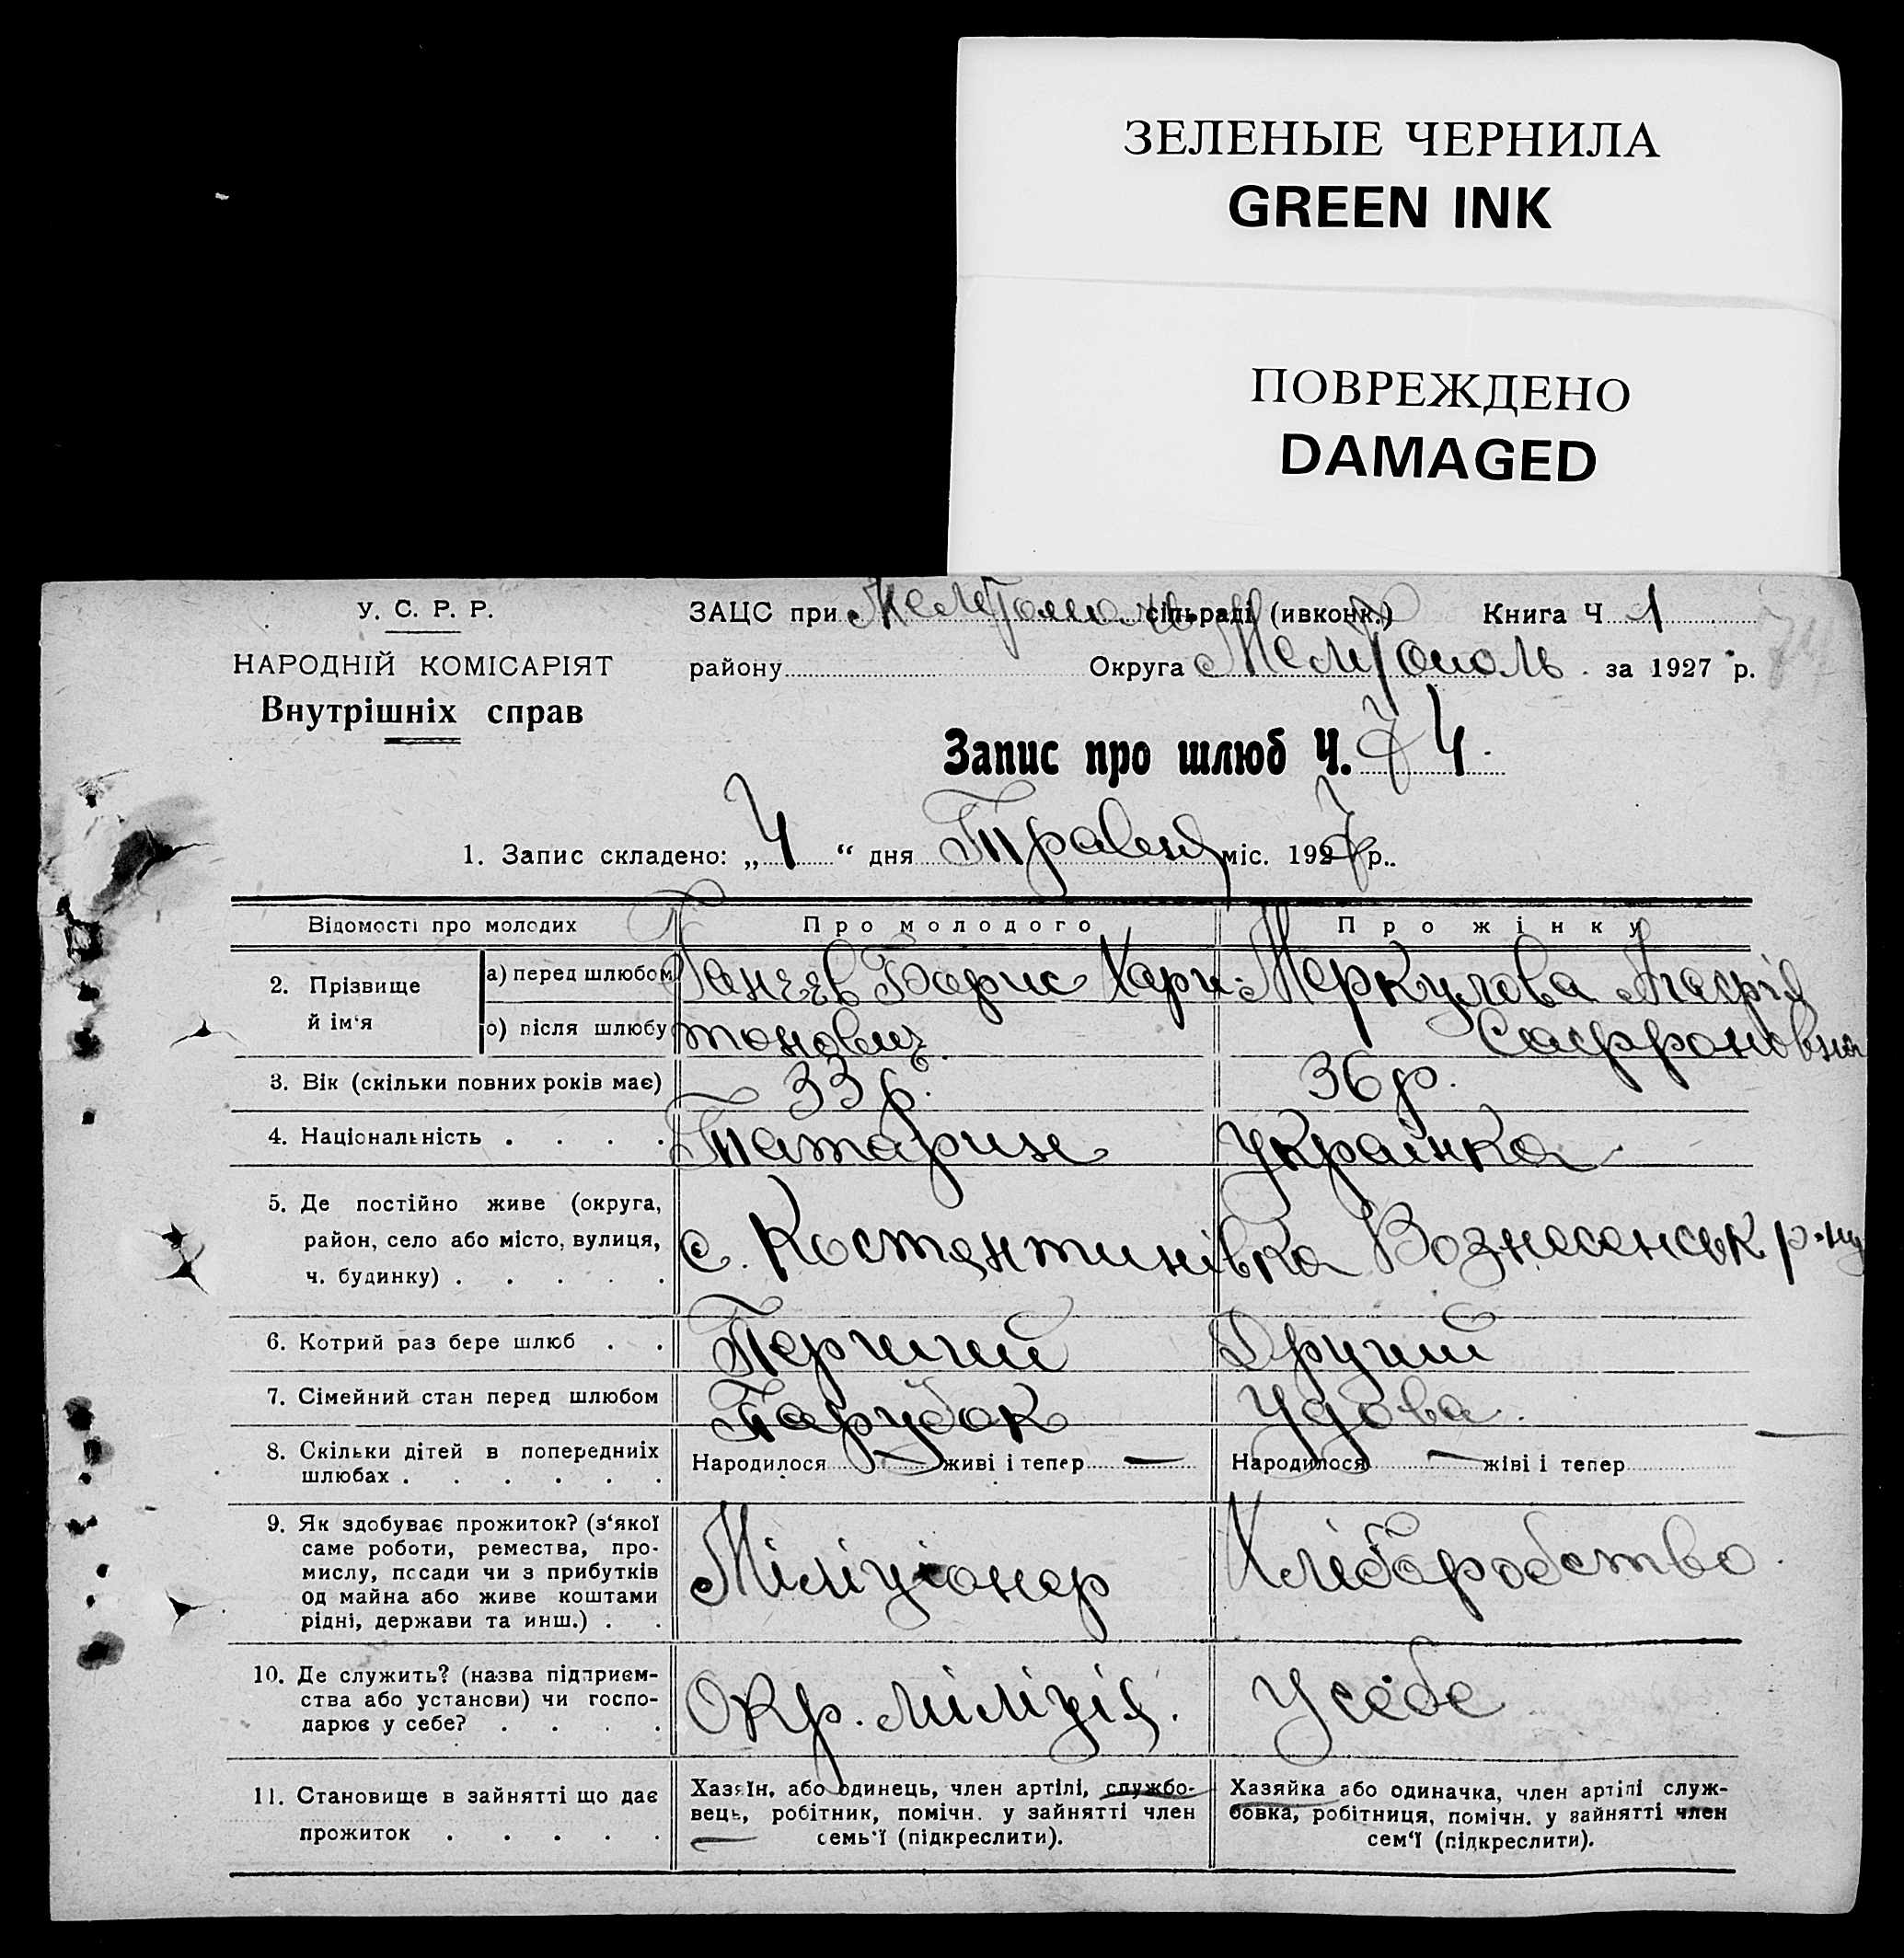 ЗЕЛЕНЫЕ ЧЕРНИЛА
GREEN INK
ПОВРЕЖДЕНО
DAMAGED
У. С. Р. Р.
НАРОДНІЙ КОМІСАРІЯТ
Внутрішніх справ
ЗАЦС при сільраді (ивконк.) Книга Ч 1
району Округа Мелітополь за 1927 р.
74
Запис про шлюб Ч. 74.
1. Запис складено: „ 4 “ дня Травня міс. 1927 р..
Відомості про молодих Про молодого Про жінку
2. Прізвище й ім'я
а) перед шлюбом Борис Хари- Меркулова Агафія
б) після шлюбу тонович. Саффроновна
3. Вік (скільки повних років має) 33 р. 36 р.
4. Національність . . . . Татарин Українка
5. Де постійно живе (округа,
район, село або місто, вулиця,
ч. будинку) . . . . .
с. Костянтинівка Вознесенськ р-ну
6. Котрий раз бере шлюб . . Перший Другий
7. Сімейний стан перед шлюбом Парубок Удова.
8. Скільки дітей в попередниіх
шлюбах . . . . . .
Народилося — живі і тепер — Народилося — жіві і тепер —
9. Як здобуває прожиток? (з'якої
саме роботи, ремества, про-
мислу, посади чи з прибутків
од майна або живе коштами
рідні, держави та инш.) . .
Міліціонер Хліборобство.
10. Де служить? (назва підприєм-
ства або установи) чи госпо-
дарює у себе? . . . .
Окр. міліція. У себе
11. Становище в зайнятті що дає
прожиток . . . . .
Хазяїн, або одинець, член артілі, службо-
вець, робітник, помічн. у зайнятті член
семь'ї (підкреслити).
Хазяйка або одиначка, член артілі служ-
бовка, робітниця, помічн. у зайнятті член
сем'ї (підкреслити).